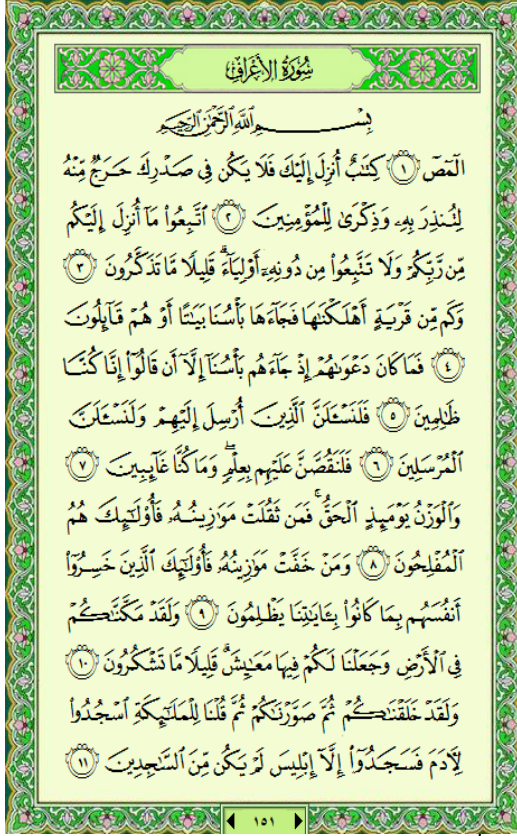 سُورَةُ الأَعْرَافِ
بِسْمِ ٱللَّهِ ٱلرَّحْمَٰنِ ٱلرَّحِيمِ
الٓمٓصٓ ١ كِتَٰبٌ أُنزِلَ إِلَيْكَ فَلَا يَكُن فِى صَدْرِكَ حَرَجٌ مِّنْهُ
لِتُنذِرَ بِهِۦ وَذِكْرَىٰ لِلْمُؤْمِنِينَ ٢ ٱتَّبِعُوا۟ مَآ أُنزِلَ إِلَيْكُم
مِّن رَّبِّكُمْ وَلَا تَتَّبِعُوا۟ مِن دُونِهِۦٓ أَوْلِيَآءَ ۗ قَلِيلًا مَّا تَذَكَّرُونَ ٣
وَكَم مِّن قَرْيَةٍ أَهْلَكْنَٰهَا فَجَآءَهَا بَأْسُنَا بَيَٰتًا أَوْ هُمْ قَآئِلُونَ
٤ فَمَا كَانَ دَعْوَىٰهُمْ إِذْ جَآءَهُم بَأْسُنَآ إِلَّآ أَن قَالُوٓا۟ إِنَّا كُنَّا
ظَٰلِمِينَ ٥ فَلَنَسْـَٔلَنَّ ٱلَّذِينَ أُرْسِلَ إِلَيْهِمْ وَلَنَسْـَٔلَنَّ
ٱلْمُرْسَلِينَ ٦ فَلَنَقُصَّنَّ عَلَيْهِم بِعِلْمٍ ۖ وَمَا كُنَّا غَآئِبِينَ ٧
وَٱلْوَزْنُ يَوْمَئِذٍ ٱلْحَقُّ ۚ فَمَن ثَقُلَتْ مَوَٰزِينُهُۥ فَأُو۟لَٰٓئِكَ هُمُ
ٱلْمُفْلِحُونَ ٨ وَمَنْ خَفَّتْ مَوَٰزِينُهُۥ فَأُو۟لَٰٓئِكَ ٱلَّذِينَ خَسِرُوٓا۟
أَنفُسَهُم بِمَا كَانُوا۟ بِـَٔايَٰتِنَا يَظْلِمُونَ ٩ وَلَقَدْ مَكَّنَّٰكُمْ
فِى ٱلْأَرْضِ وَجَعَلْنَا لَكُمْ فِيهَا مَعَٰيِشَ ۗ قَلِيلًا مَّا تَشْكُرُونَ ١٠
وَلَقَدْ خَلَقْنَٰكُمْ ثُمَّ صَوَّرْنَٰكُمْ ثُمَّ قُلْنَا لِلْمَلَٰٓئِكَةِ ٱسْجُدُوا۟
لِءَادَمَ فَسَجَدُوٓا۟ إِلَّآ إِبْلِيسَ لَمْ يَكُن مِّنَ ٱلسَّٰجِدِينَ ١١
١٥١